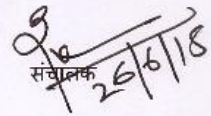 संचालक
26/6/18